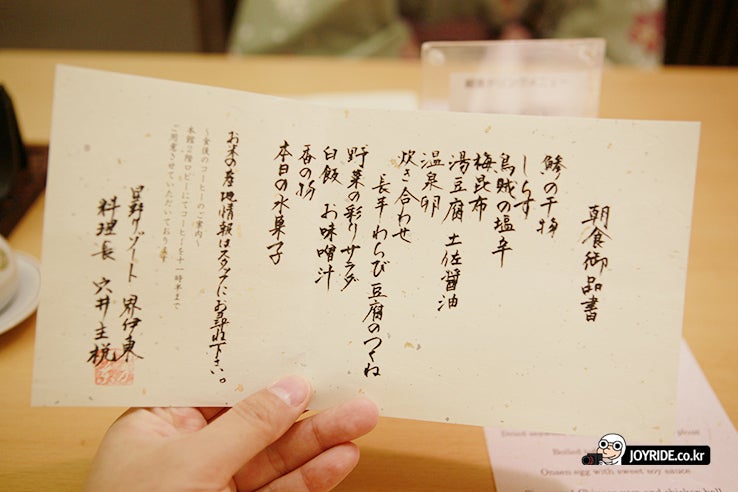 朝食御品書
鯵の干物
しらす
烏賊の塩辛
梅昆布
湯豆腐 土佐醤油
温泉卵
炊き合わせ
長芋わらび豆腐のつくね
野菜の彩りサラダ
白飯 お味噌汁
香の物
本日の水菓子
お米の産地情報はスタッフにお尋ね下さい。
~食後のコーヒーのご案内~
本館2階ロビーにてコーヒーを十一時半まで
ご用意させていただいております
星野リゾート 界伊東
料理長 穴井主税
Onsen egg with sweet soy sauce
JOYRIDE.co.kr